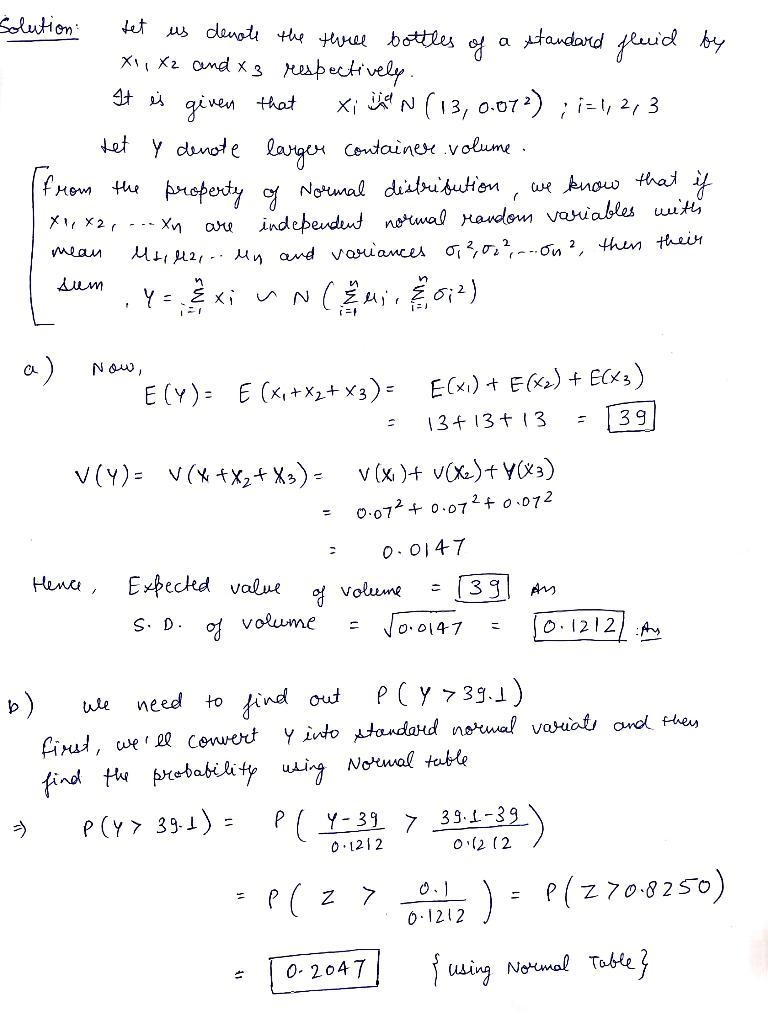 Solution: Let us denote the three bottles of a standard fluid by
X1, X2 and X3 respectively.
It is given that Xi iid N (13, 0.07²) ; i=1, 2, 3
Let Y denote larger container volume.
From the property of Normal distribution, we know that if
X1, X2, ... Xn are independent normal random variables with
mean μ1, μ2, .. μn and variances σ1², σ2², ... σn², then their
sum, Y = Σ(i=1 to n) Xi ∽ N ( Σ(i=1 to n) μi, Σ(i=1 to n) σi²)
a) Now,
E(Y) = E (X1+X2+X3) = E(X1) + E(X2) + E(X3)
= 13+13+13 = 39
V(Y) = V(X1+X2+X3) = V(X1) + V(X2) + V(X3)
= 0.07² + 0.07² + 0.07²
= 0.0147
Hence, Expected value of volume = 39 An
S.D. of volume = √0.0147 = 0.1212 :An
b) we need to find out P(Y > 39.1)
first, we'll convert Y into standard normal variate and then
find the probability using Normal table
⇒ P(Y > 39.1) = P( (Y-39)/0.1212 > (39.1-39)/0.1212 )
= P( Z > 0.1/0.1212 ) = P(Z > 0.8250)
= 0.2047 {using Normal Table}